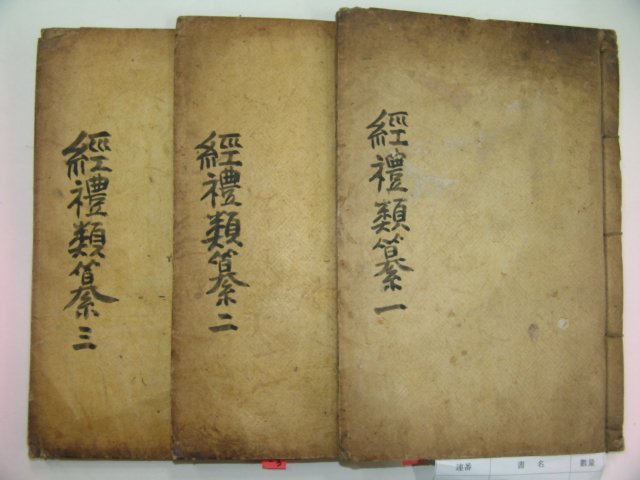 經禮類纂 一
經禮類纂 二
經禮類纂 三
3
連番 書名 數量